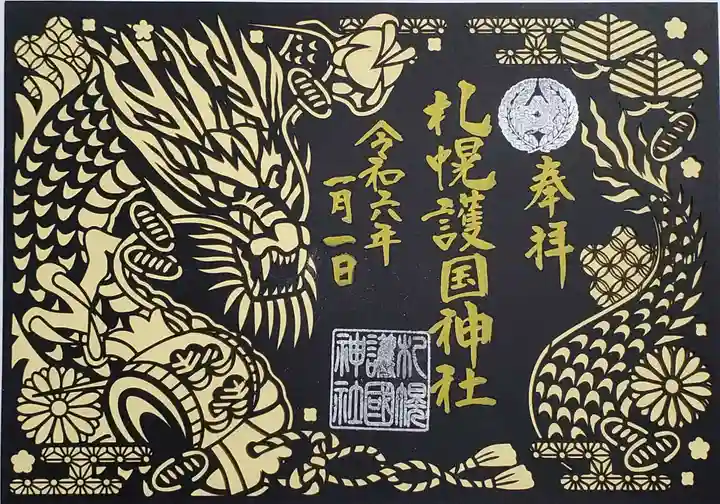 奉拝
札幌護国神社
令和六年
一月一日
札幌
護國
神社